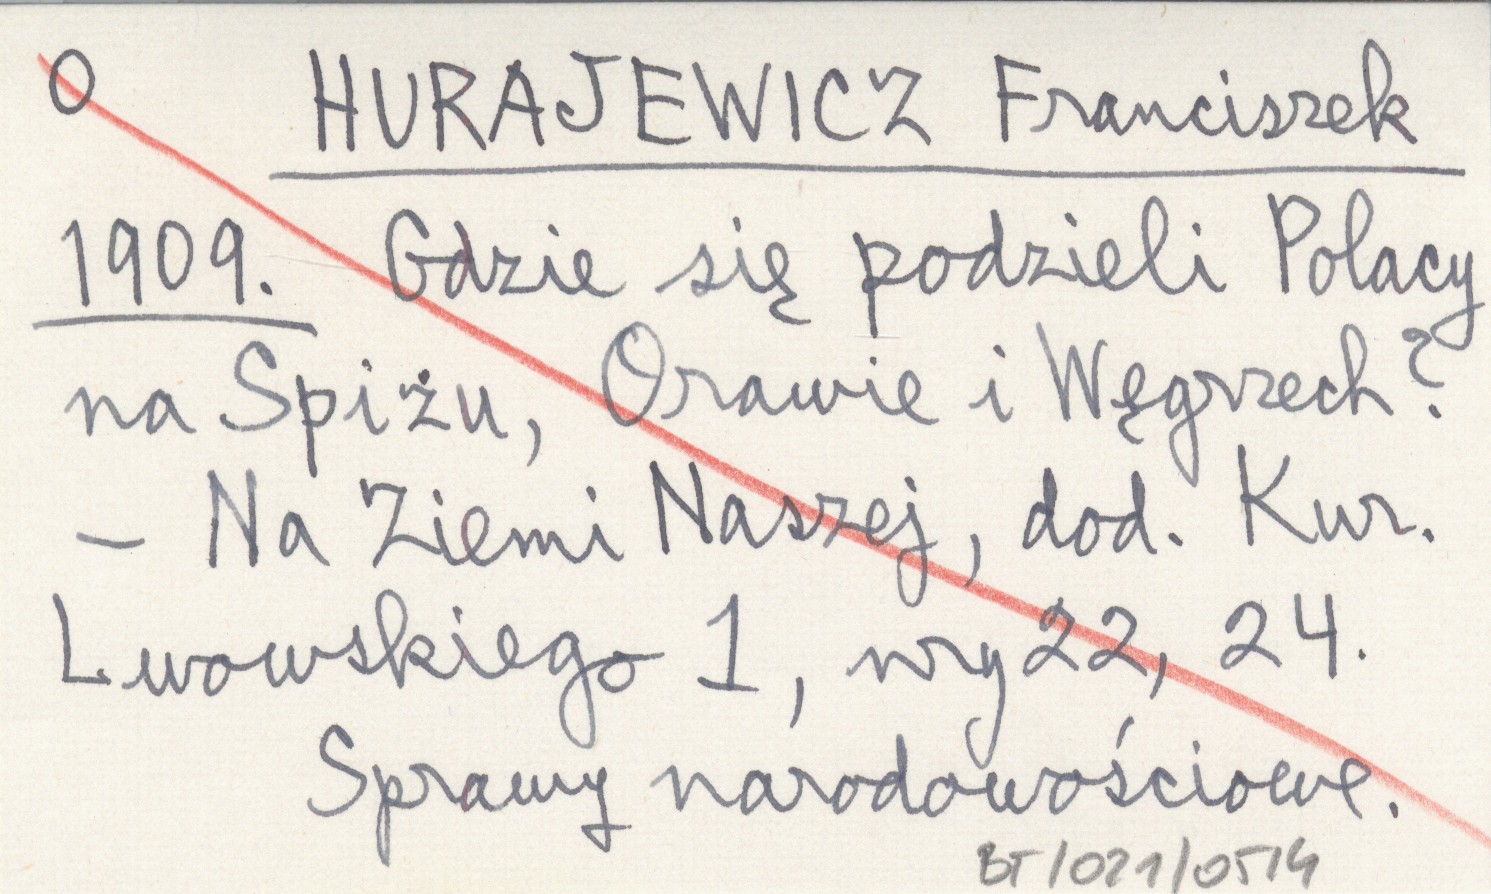 O HURAJEWICZ Franciszek
1909. Gdzie się podzieli Polacy
na Spiżu, Orawie i Węgrzech?
– Na Ziemi Naszej, dod. Kur.
Lwowskiego 1, nry 22, 24.
Sprawy narodowościowe.
BT/021/0514